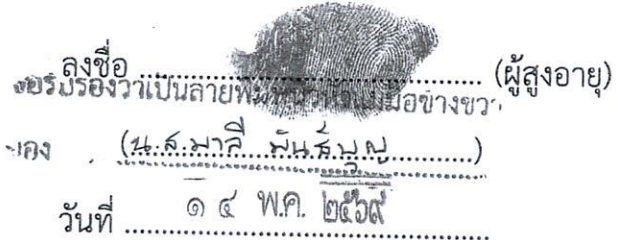 ลงชื่อ ........................ (ผู้สูงอายุ)
ขอรับรองว่าเป็นลายพิมพ์นิ้วหัวแม่มือข้างขวา
ของ (น.ส.มาลี พันธ์บุญ)
วันที่ ๑ ๔ พ.ค. ๒๕๖๙